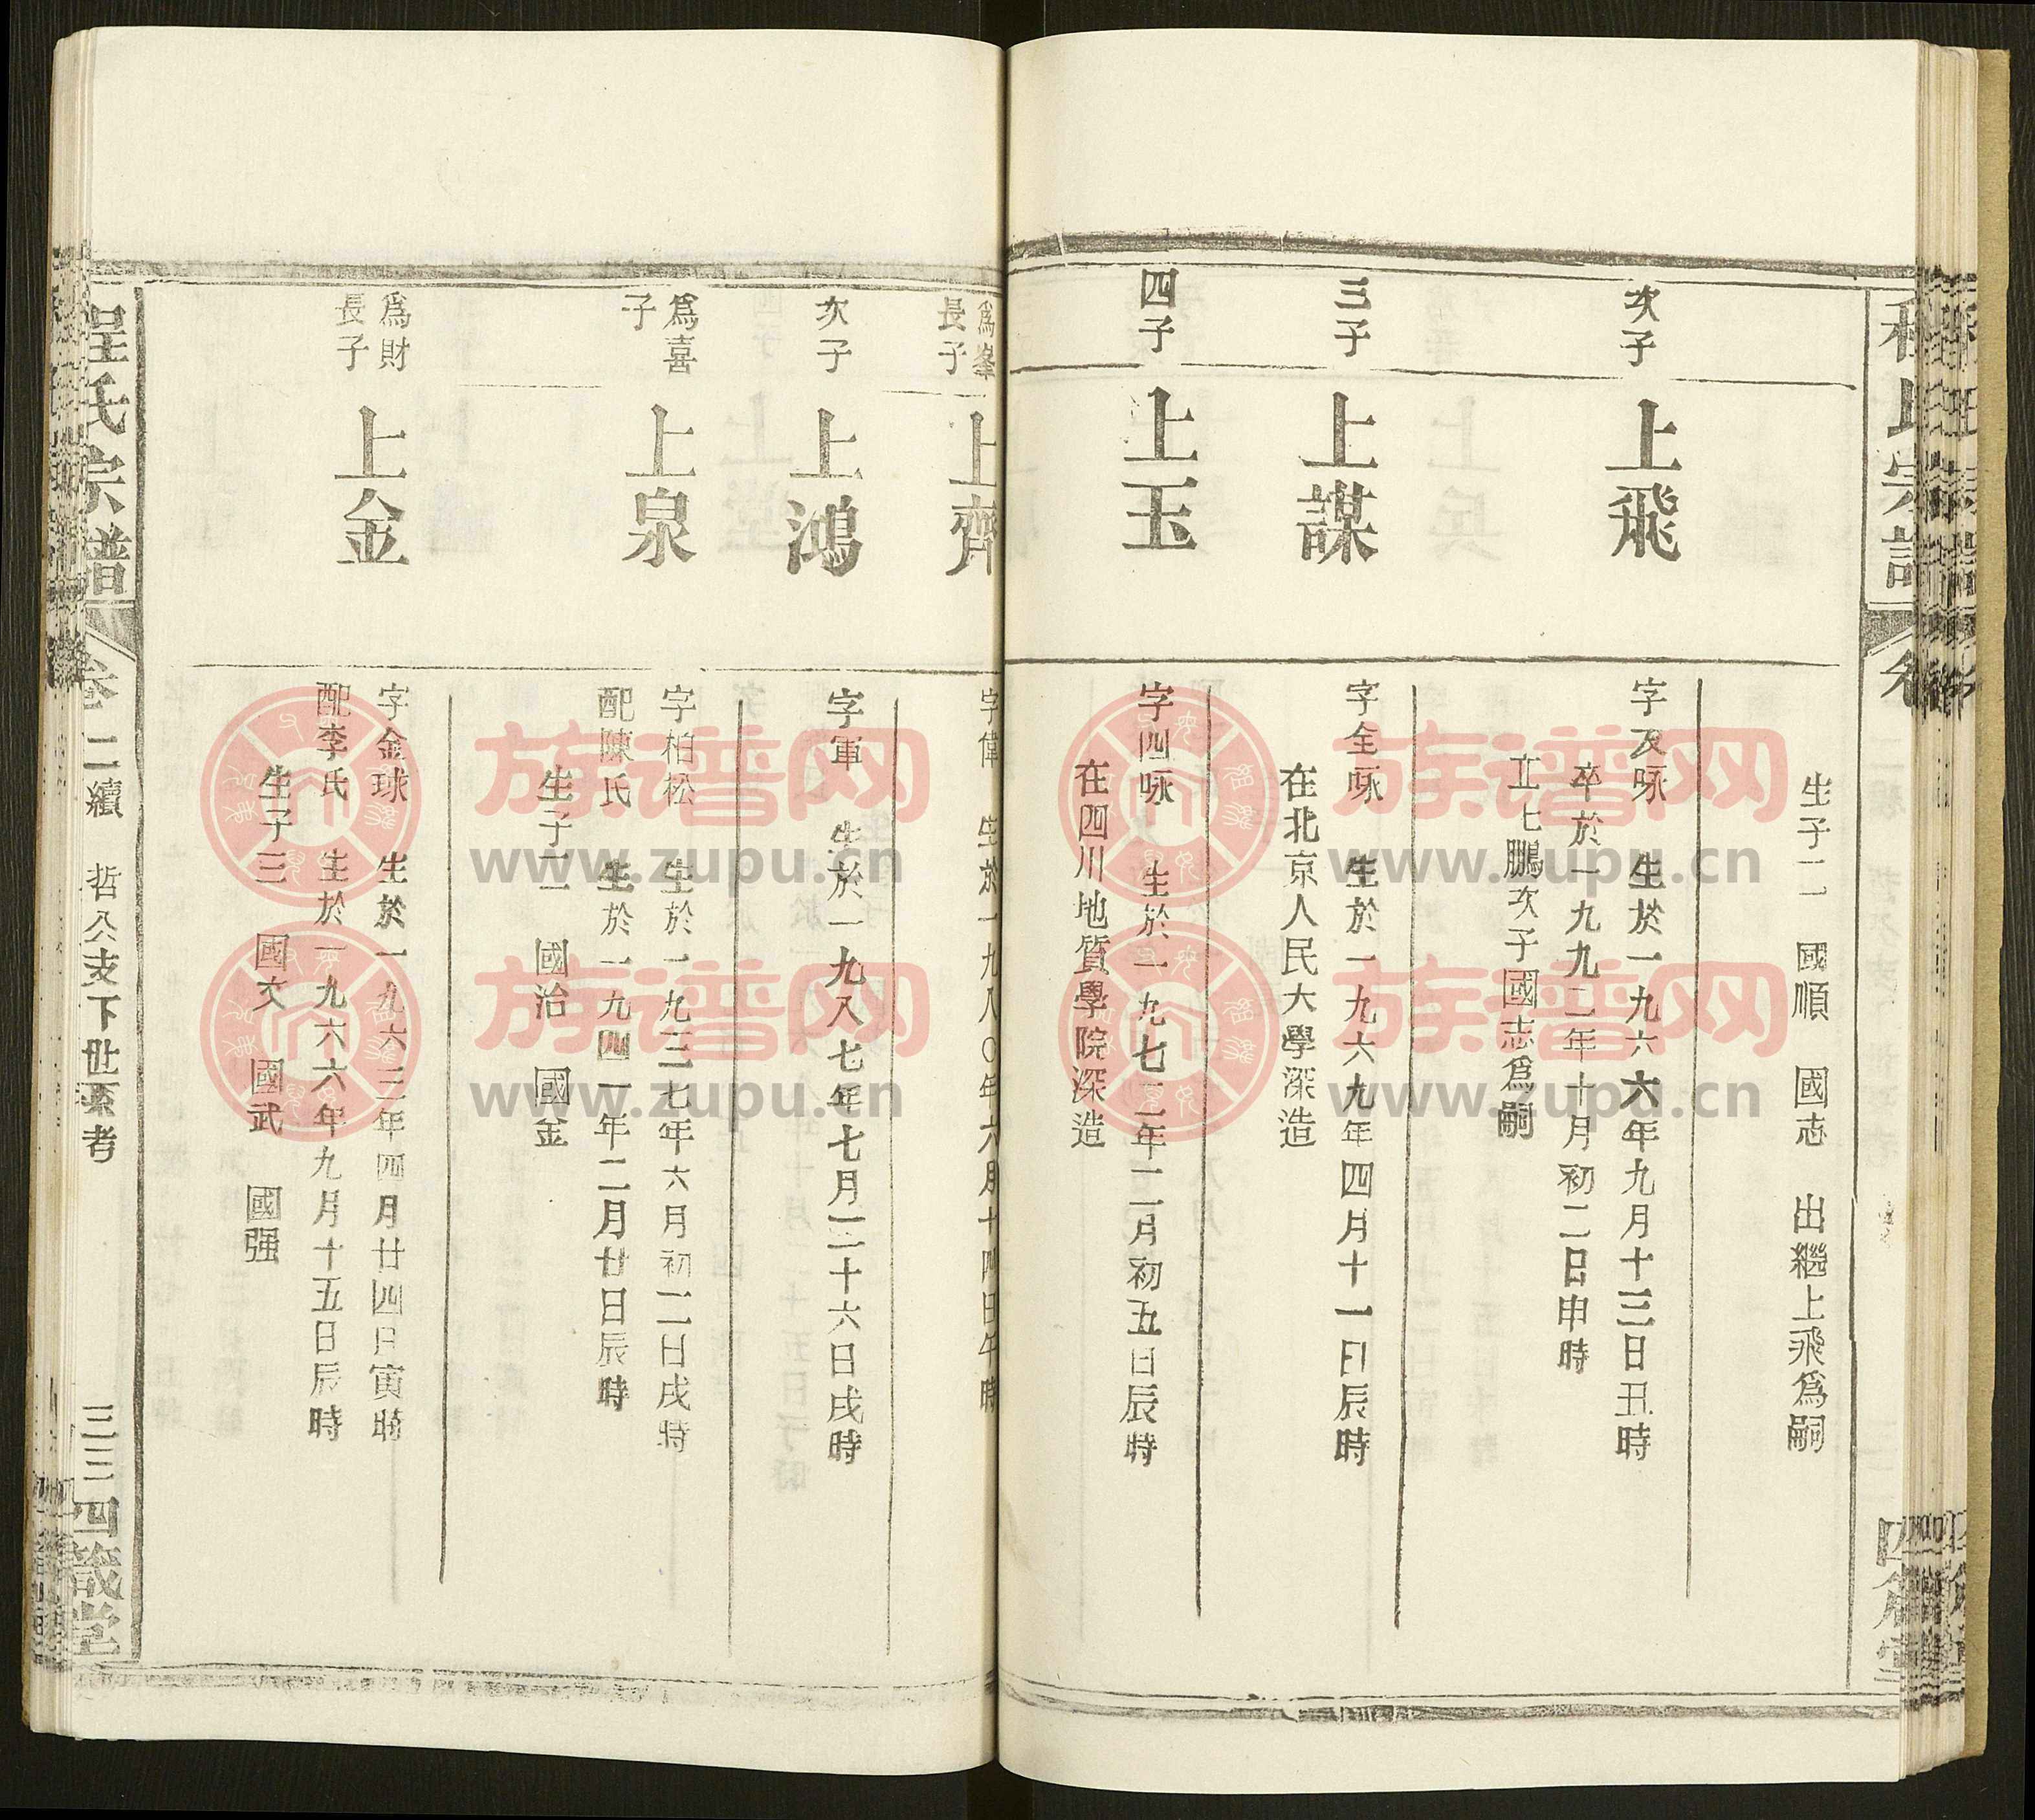 生子二 國順 國志 出繼上飛為嗣
次子
上飛
字及咏 生於一九六六年九月十三日丑時
卒於一九九二年十月初二日申時
立上鵬次子國志為嗣
三子
上謀
字全咏 生於一九六九年四月十一日辰時
在北京人民大學深造
四子
上玉
字四咏 生於一九七二年二月初五日辰時
在四川地質學院深造
為峯
長子
上齊
字偉 生於一九八〇年六月十四日午時
次子
上鴻
字軍 生於一九八七年七月二十六日戌時
為喜
子
上泉
字柏松 生於一九三七年六月初二日戌時
配陳氏 生於一九四一年二月廿日辰時
生子二 國治 國金
為財
長子
上金
字金球 生於一九六三年四月廿四日寅時
配李氏 生於一九六六年九月十五日辰時
生子三 國文 國武 國强
程氏宗譜 卷二續 哲公支下世系考 三三 四箴堂
族谱网
www.zupu.cn
族谱网
www.zupu.cn
族谱网
www.zupu.cn
族谱网
www.zupu.cn